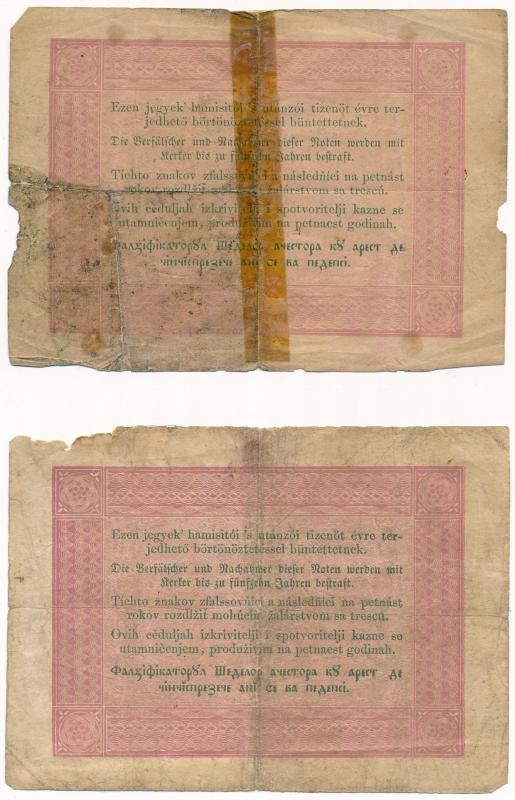 Ezen jegyek' hamisítói 's utánzói tizenöt évre ter-
jedhető börtönöztetéssel büntettetnek.
Die Verfälscher und Nachahmer dieser Noten werden mit
Kerker bis zu fünfzehn Jahren bestraft.
Tíchto znakov zfalssovňíci a následňíci na petnást
rokov rozdlžit žalárstvom sa trescú.
Ovih céduljah izkrivitelji i spotvoritelji kazne se
utamničenjem, produživim na petnaest godinah.
Фалціфікаторꙋл Шеделор ачестора кꙋ арест де
чінчіспрезече ані се ва педепсі.
Ezen jegyek' hamisítói 's utánzói tizenöt évre ter-
jedhető börtönöztetéssel büntettetnek.
Die Verfälscher und Nachahmer dieser Noten werden mit
Kerker bis zu fünfzehn Jahren bestraft.
Tíchto znakov zfalssovňíci a následňíci na petnást
rokov rozdlžit mohúcím žalárstvom sa trescú.
Ovih céduljah izkrivitelji i spotvoritelji kazne se
utamničenjem, produživim na petnaest godinah.
Фалціфікаторꙋл Шеделор ачестора кꙋ арест де
чінчіспрезече ані се ва педепсі.